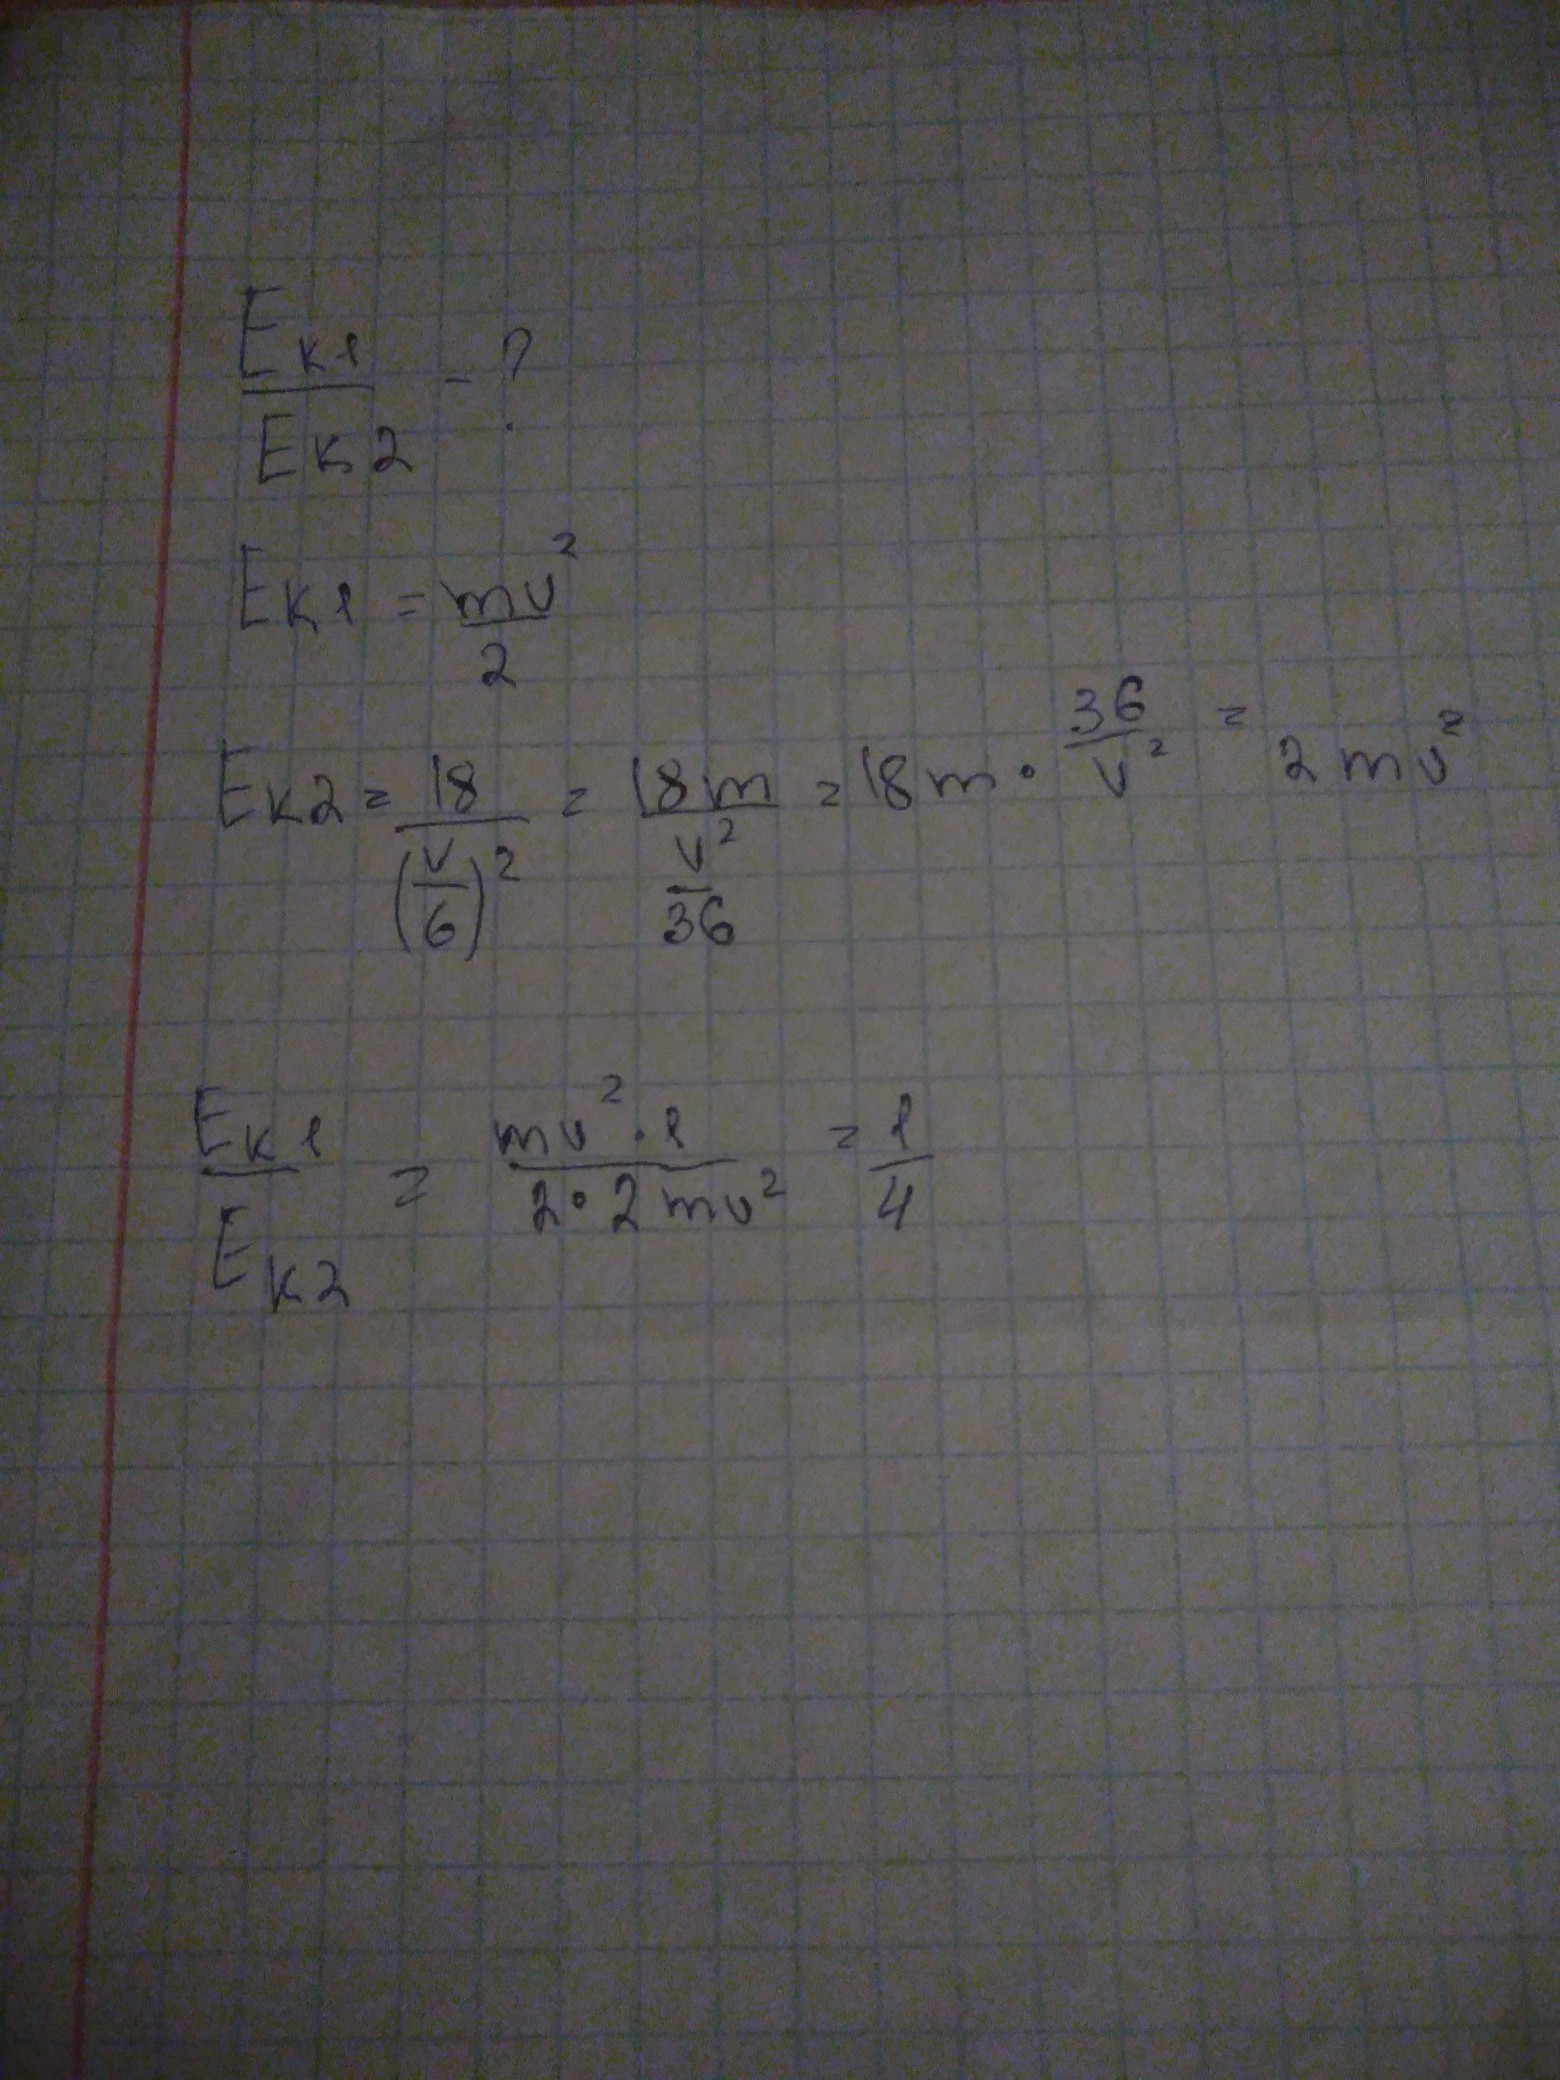 Eк1/Eк2 - ?
Eк1 = mv²/2
Eк2 = 18/(v/6)² = 18m/(v²/36) = 18m · 36/v² = 2mv²
Eк1/Eк2 = mv² · 1/2 · 2mv² = 1/4